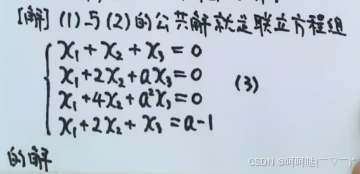 [解] (1)与(2)的公共解就是联立方程组
x₁+x₂+x₃=0
x₁+2x₂+ax₃=0
x₁+4x₂+a²x₃=0
x₁+2x₂+x₃=a-1
(3)
的解
CSDN @呵呵哒(￣▽￣)"